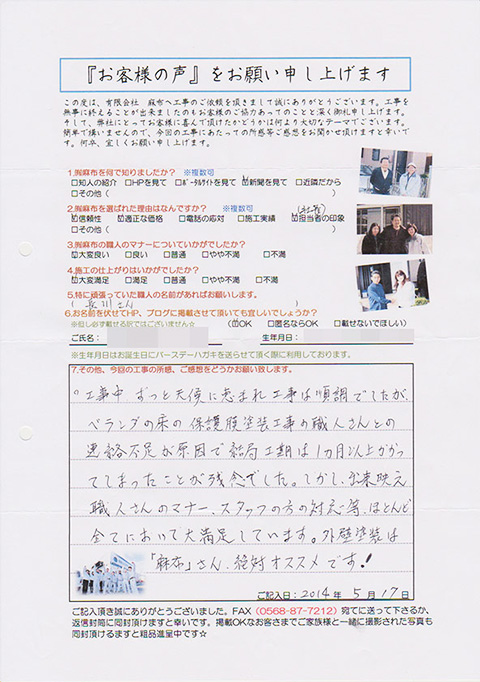 『お客様の声』をお願い申し上げます
この度は、有限会社 麻布へ工事のご依頼を頂きまして誠にありがとうございます。工事を
無事に終えることが出来ましたのもお客様のご協力あってのことと深く御礼申し上げます。
そして、弊社にとってお客様に喜んで頂けたかどうかは何より大切なテーマでございます。
簡単で構いませんので、今回の工事にあたっての所感等ご感想をお聞かせ頂けますと幸いで
す。何卒、宜しくお願い申し上げます。
1.㈲麻布を何で知りましたか? ※複数可
□知人の紹介 □HPを見て □ポータルサイトを見て ☑新聞を見て □近隣だから
□その他(
2.㈲麻布を選ばれた理由はなんですか? ※複数可
☑信頼性 ☑適正な価格 □電話の応対 □施工実績 ☑担当者の印象
□その他(
3.㈲麻布の職人のマナーについていかがでしたか?
☑大変良い □良い □普通 □やや不満 □不満
4.施工の仕上がりはいかがでしたか?
☑大変満足 □満足 □普通 □やや不満 □不満
5.特に頑張っていた職人の名前があればお願いします。
( 長川さん )
6.お名前を伏せてHP、ブログに掲載させて頂いても宜しいでしょうか?
※但し必ず載せる訳ではございません☆ (☑OK □匿名ならOK □載せないでほしい)
ご氏名: 生年月日:
※生年月日はお誕生日にバースデーハガキを送らせて頂く際に利用しております。
7.その他、今回の工事の所感、ご感想をどうかお願い致します。
工事中、ずっと天候に恵まれ工事は順調でしたが、
ベランダの床の保護膜塗装工事の職人さんとの
連絡不足が原因で結局工期は1ヵ月以上かかっ
てしまったことが残念でした。しかし、出来映え
職人さんのマナー、スタッフの方の対応等、ほとんど
全てにおいて大満足しています。外壁塗装は
「麻布」さん、絶対オススメです!
ご記入日:2014年 5月 17日
ご記入頂き誠にありがとうございました。FAX(0568-87-7212)宛てに送って下さるか、
返信封筒に同封頂けますと幸いです。掲載OKなお客さまでご家族様と一緒に撮影された写真も
同封頂けるますと粗品進呈中です☆